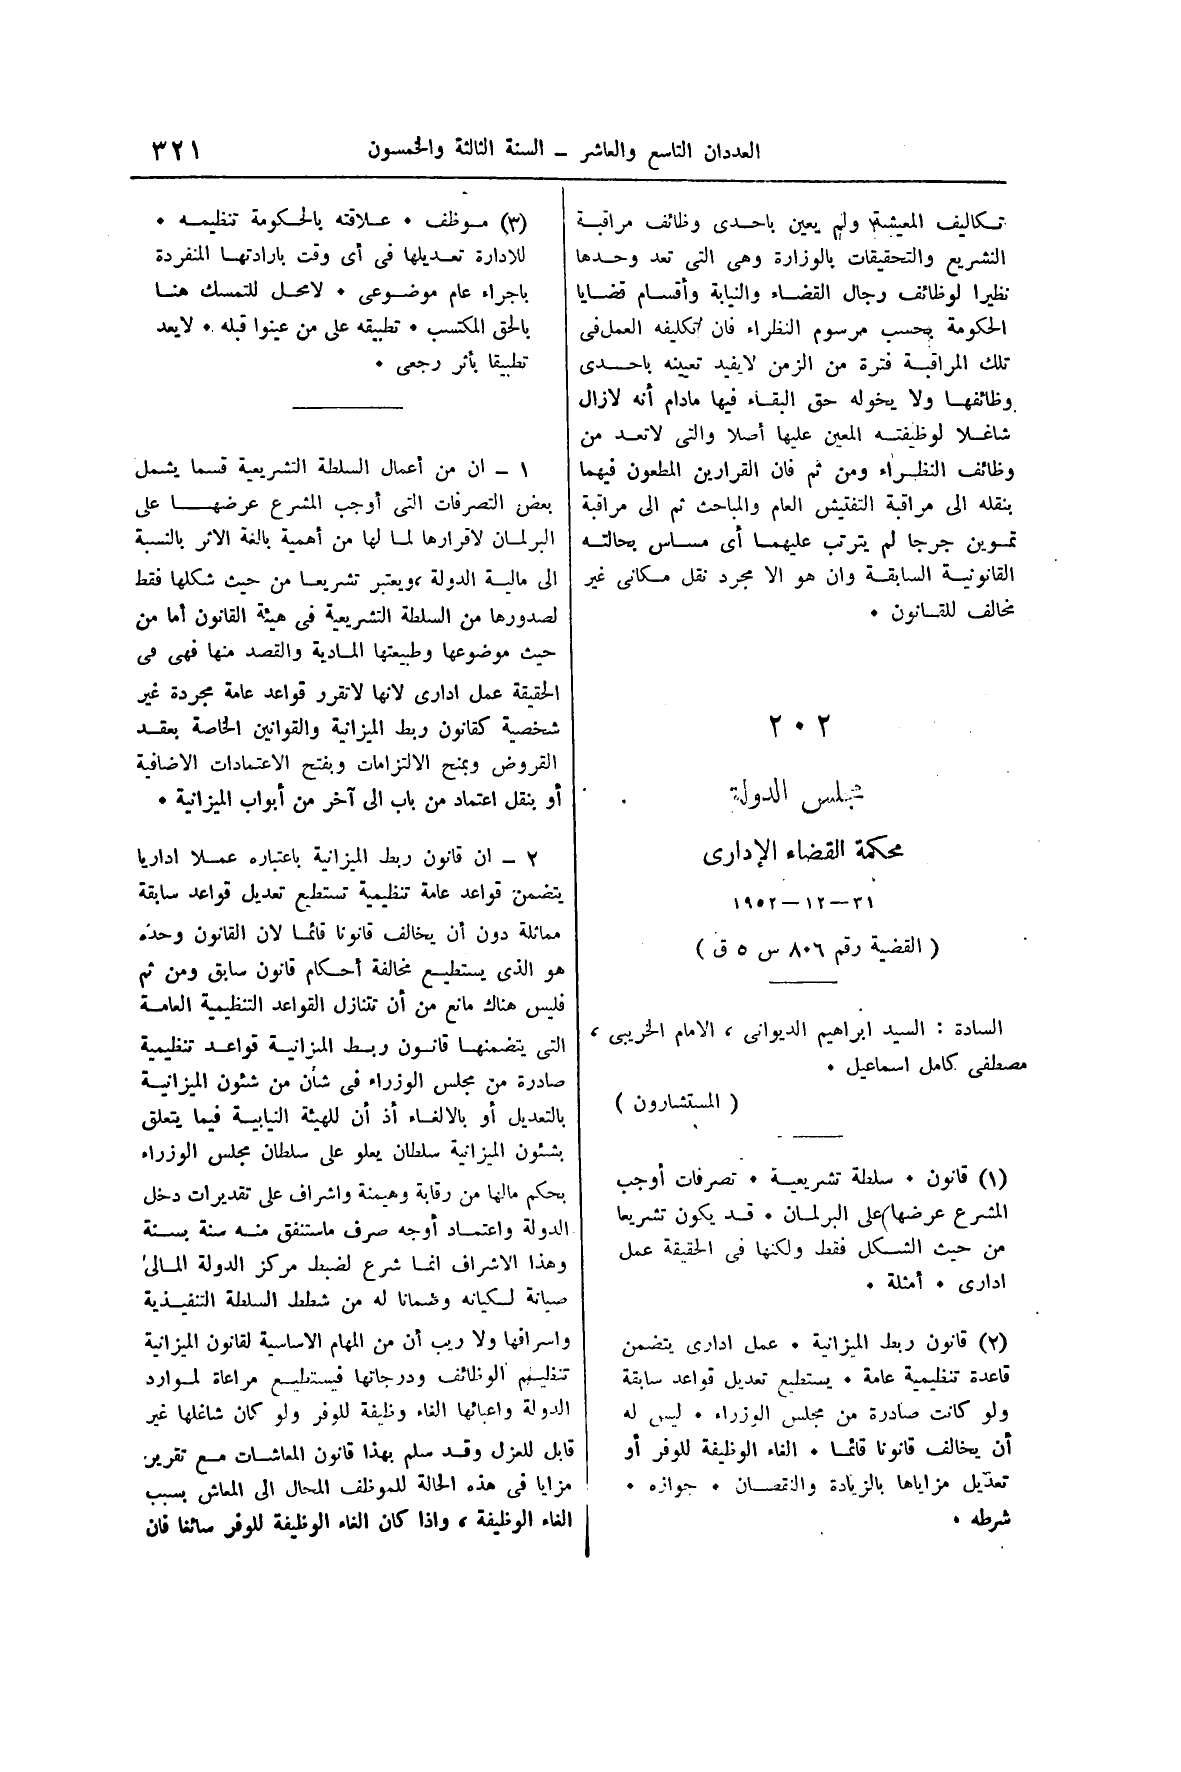 العددان التاسع والعاشر – السنة الثالثة والخمسون
٣٢١
تكاليف المعيشة ولم يعين باحدى وظائف مراقبة
التشريع والتحقيقات بالوزارة وهى التى تعد وحدها
نظيرا لوظائف رجال القضاء والنيابة وأقسام قضايا
الحكومة بحسب مرسوم النظراء فان تكليفه العمل فى
تلك المراقبة فترة من الزمن لايفيد تعيينه باحدى
وظائفها ولا يخوله حق البقاء فيها مادام أنه لازال
شاغلا لوظيفته المعين عليها أصلا والتى لاتعد من
وظائف النظراء ومن ثم فان القرارين المطعون فيهما
بنقله الى مراقبة التفتيش العام والمباحث ثم الى مراقبة
تموين جرجا لم يترتب عليهما أى مساس بحالته
القانونية السابقة وان هو الا مجرد نقل مكانى غير
مخالف للقانون ٠
٢٠٢
مجلس الدولة
محكمة القضاء الإدارى
٣١–١٢–١٩٥٢
( القضية رقم ٨٠٦ س ٥ ق )
السادة : السيد ابراهيم الديوانى ، الامام الخريبى ،
مصطفى كامل اسماعيل ٠
( المستشارون )
(١) قانون ٠ سلطة تشريعية ٠ تصرفات أوجب
المشرع عرضها على البرلمان ٠ قد يكون تشريعا
من حيث الشكل فقط ولكنها فى الحقيقة عمل
ادارى ٠ أمثلة ٠
(٢) قانون ربط الميزانية ٠ عمل ادارى يتضمن
قاعدة تنظيمية عامة ٠ يستطيع تعديل قواعد سابقة
ولو كانت صادرة من مجلس الوزراء ٠ ليس له
أن يخالف قانونا قائما ٠ الغاء الوظيفة للوفر أو
تعديل مزاياها بالزيادة والنقصان ٠ جوازه ٠
شرطه ٠
(٣) موظف ٠ علاقته بالحكومة تنظيمه ٠
للادارة تعديلها فى أى وقت بارادتها المنفردة
باجراء عام موضوعى ٠ لامحل للتمسك هنا
بالحق المكتسب ٠ تطبيقه على من عينوا قبله ٠ لايعد
تطبيقا بأثر رجعى ٠
١ – ان من أعمال السلطة التشريعية قسما يشمل
بعض التصرفات التى أوجب المشرع عرضها على
البرلمان لاقرارها لما لها من أهمية بالغة الاثر بالنسبة
الى مالية الدولة ،ويعتبر تشريعا من حيث شكلها فقط
لصدورها من السلطة التشريعية فى هيئة القانون أما من
حيث موضوعها وطبيعتها المادية والقصد منها فهى فى
الحقيقة عمل ادارى لانها لاتقرر قواعد عامة مجردة غير
شخصية كقانون ربط الميزانية والقوانين الخاصة بعقد
القروض وبمنح الالتزامات وبفتح الاعتمادات الاضافية
أو بنقل اعتماد من باب الى آخر من أبواب الميزانية ٠
٢ – ان قانون ربط الميزانية باعتباره عملا اداريا
يتضمن قواعد عامة تنظيمية تستطيع تعديل قواعد سابقة
مماثلة دون أن يخالف قانونا قائما لان القانون وحده
هو الذى يستطيع مخالفة أحكام قانون سابق ومن ثم
فليس هناك مانع من أن تتنازل القواعد التنظيمية العامة
التى يتضمنها قانون ربط الميزانية قواعد تنظيمية
صادرة من مجلس الوزراء فى شأن من شئون الميزانية
بالتعديل أو بالالغاء أذ أن للهيئة النيابية فيما يتعلق
بشئون الميزانية سلطان يعلو على سلطان مجلس الوزراء
بحكم مالها من رقابة وهيمنة واشراف على تقديرات دخل
الدولة واعتماد أوجه صرف ماستنفق منه سنة بسنة
وهذا الاشراف انما شرع لضبط مركز الدولة المالى
صيانة لكيانه وضمانا له من شطط السلطة التنفيذية
واسرافها ولا ريب أن من المهام الاساسية لقانون الميزانية
تنظيم الوظائف ودرجاتها فيستطيع مراعاة لموارد
الدولة واعبائها الغاء وظيفة للوفر ولو كان شاغلها غير
قابل للعزل وقد سلم بهذا قانون المعاشات مع تقرير
مزايا فى هذه الحالة للموظف المحال الى المعاش بسبب
الغاء الوظيفة ، واذا كان الغاء الوظيفة للوفر سائغا فان